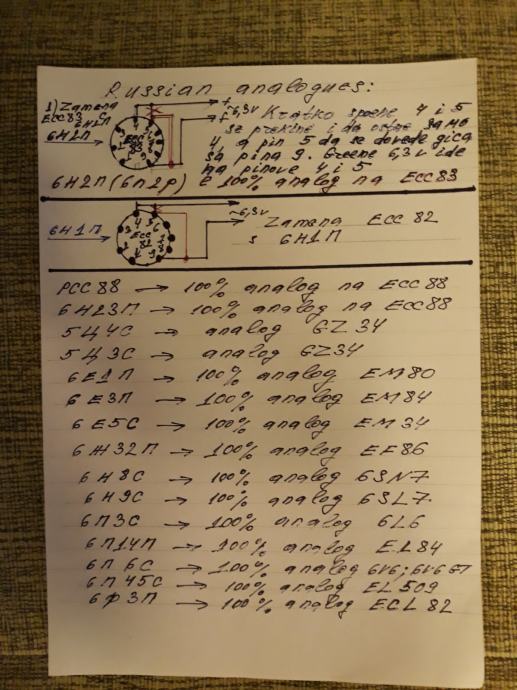 Russian analogues:
1) Zamena
ECC83 s
6Н2П
6Н2П
~6,3v
Kratko spoene 4 i 5
se prekine i da ostne samo
4, a pin 5 da se dovede gica
sa pina 9. Greene 6,3v ide
na pinove 4 i 5
6Н2П (6n2p) e 100% analog na ECC83
6Н1П
ECC
82
~6,3v
Zamena ECC 82
s 6Н1П
PCC88 → 100% analog na ECC88
6Н23П → 100% analog na ECC88
5Ц4С → analog GZ34
5Ц3С → analog GZ34
6Е1П → 100% analog EM80
6Е3П → 100% analog EM84
6Е5С → 100% analog EM34
6Ж32П → 100% analog EF86
6Н8С → 100% analog 6SN7
6Н9С → 100% analog 6SL7
6П3С → 100% analog 6L6
6П14П → 100% analog EL84
6П6С → 100% analog 6V6; 6V6 GT
6П45С → 100% analog EL509
6Ф3П → 100% analog ECL82